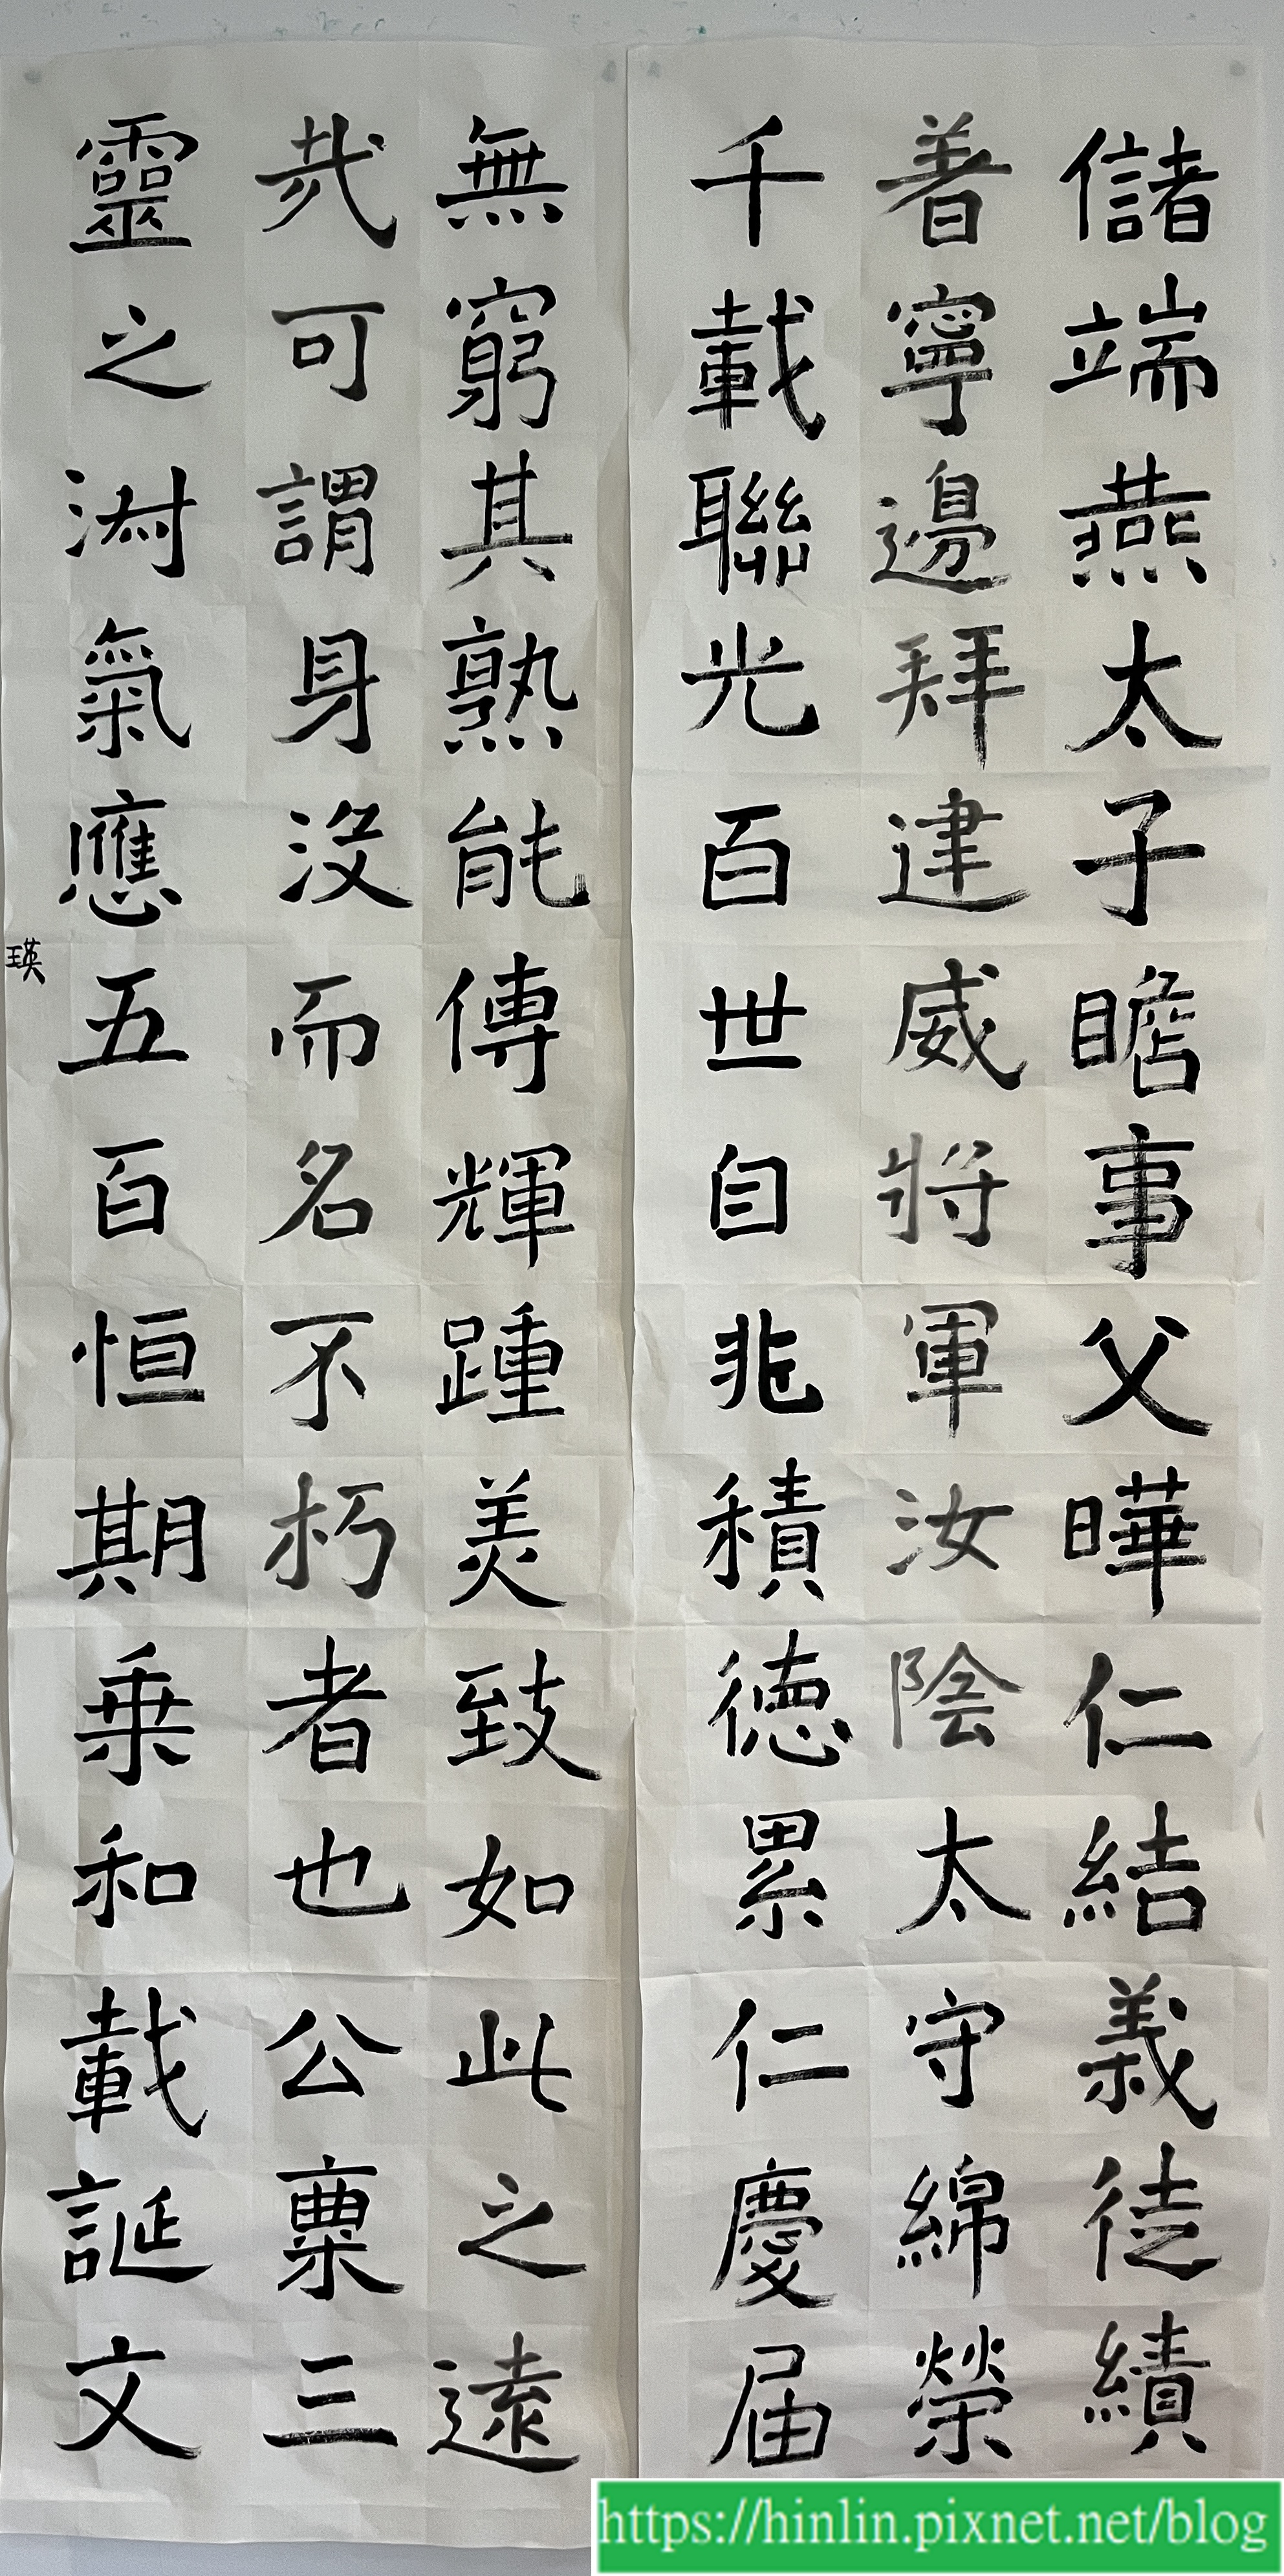 儲端燕太子瞻事父曄仁結義徒績
著寧邊拜建威將軍汝陰太守綿榮
千載聯光百世自非積德累仁慶屆
無窮其熟能傳輝踵美致如此之遠
哉可謂身沒而名不朽者也公稟三
靈之淑氣應五百恒期乘和載誕文
瑛
https://hinlin.pixnet.net/blog